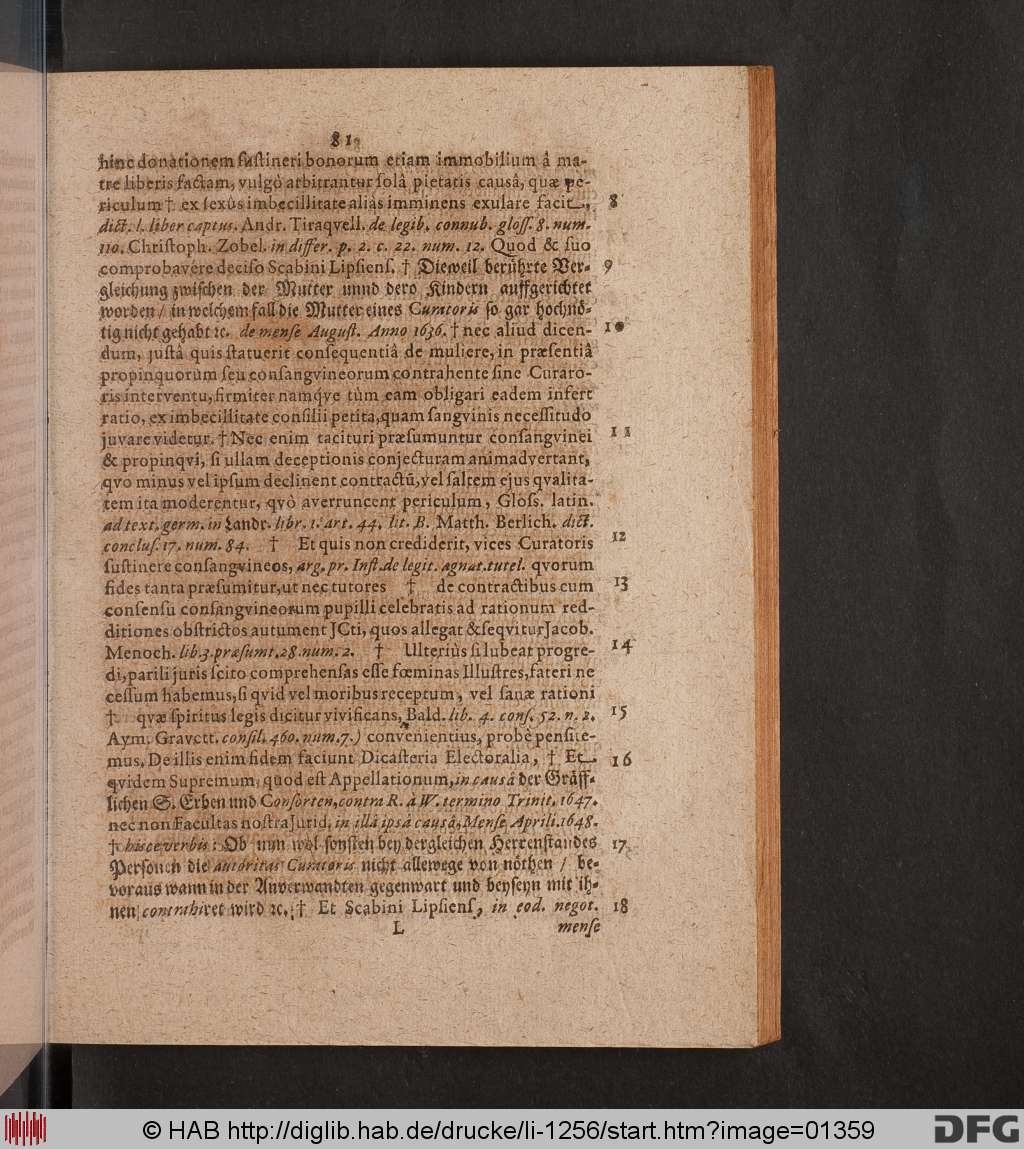 81.
hinc donationem ſuſtineri bonorum etiam immobilium â ma-
tre liberis factam, vulgò arbitrantur ſolâ pietatis causâ, quæ pe-
riculum † ex ſexûs imbecillitate aliàs imminens exulare facit, 8
dict. l. liber captus. Andr. Tiraqvell. de legib. connub. gloſſ. 8. num.
110. Chriſtoph. Zobel. in differ. p. 2. c. 22. num. 12. Quod & ſuo
comprobavêre deciſo Scabini Lipſienſ. † Dieweil berührte Ver- 9
gleichung zwiſchen der Mutter unnd dero Kindern auffgerichtet
worden / in welchem fall die Mutter eines Curatoris ſo gar hochnö-
tig nicht gehabt ꝛc. de menſe Auguſt. Anno 1636. † nec aliud dicen- 10
dum, juſtâ quis ſtatuerit conſequentiâ de muliere, in præſentiâ
propinquorum ſeu conſangvineorum contrahente ſine Curato-
ris interventu, firmiter namq́ve tùm eam obligari eadem infert
ratio, ex imbecillitate conſilii petita, quam ſangvinis neceſſitudo
juvare videtur. † Nec enim tacituri præſumuntur conſangvinei 11
& propinqvi, ſi ullam deceptionis conjecturam animadvertant,
qvo minus vel ipſum declinent contractũ, vel ſaltem ejus qvalita-
tem ita moderentur, qvò averruncent periculum, Gloſs. latin.
ad text. germ. in Landr. libr. 1. art. 44. lit. B. Matth. Berlich. dict.
concluſ. 17. num. 84. † Et quis non crediderit, vices Curatoris 12
ſuſtinere conſangvineos, arg. pr. Inſt. de legit. agnat. tutel. qvorum
fides tanta præſumitur, ut nec tutores † de contractibus cum 13
conſenſu conſangvineorum pupilli celebratis ad rationum red-
ditiones obſtrictos autument JCti, quos allegat & ſeqvitur Jacob.
Menoch. lib. 3. præſumt. 28. num. 2. † Ulteriùs ſi lubeat progre- 14
di, parili juris ſcito comprehenſas eſſe fœminas Illuſtres, fateri ne
ceſſum habemus, ſi qvid vel moribus receptum, vel ſanæ rationi
† qvæ ſpiritus legis dicitur vivificans, Bald. lib. 4. conſ. 52. n. 2. 15
Aym. Gravett. conſil. 460. num. 7.) convenientius, probè penſite-
mus. De illis enim fidem faciunt Dicaſteria Electoralia, † Et 16
qvidem Supremum, quod eſt Appellationum, in causâ der Gräff-
lichen S. Erben und Conſorten, contra R. à W. termino Trinit. 1647.
nec non Facultas noſtra Jurid. in illâ ipsâ causâ, Menſe Aprili. 1648.
† hisce verbis: Ob nun wol ſonſten bey dergleichen Herrenſtandes 17
Perſonen die autoritas Curatoris nicht allewege von nöthen / be-
voraus wann in der Anverwandten gegenwart und beyſeyn mit ih-
nen contrahiret wird ꝛc. † Et Scabini Lipſienſ, in eod. negot. 18
L menſe
© HAB http://diglib.hab.de/drucke/li-1256/start.htm?image=01359
DFG